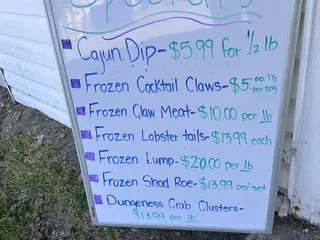 Cajun Dip-$5.99 for 1/2 lb
Frozen Cocktail Claws-$5.00 1lb per bag
Frozen Claw Meat-$10.00 per lb
Frozen Lobster tails-$13.99 each
Frozen Lump-$20.00 per lb
Frozen Shad Roe-$13.99 per set
Dungeness Crab Clusters-
$13.99 per lb